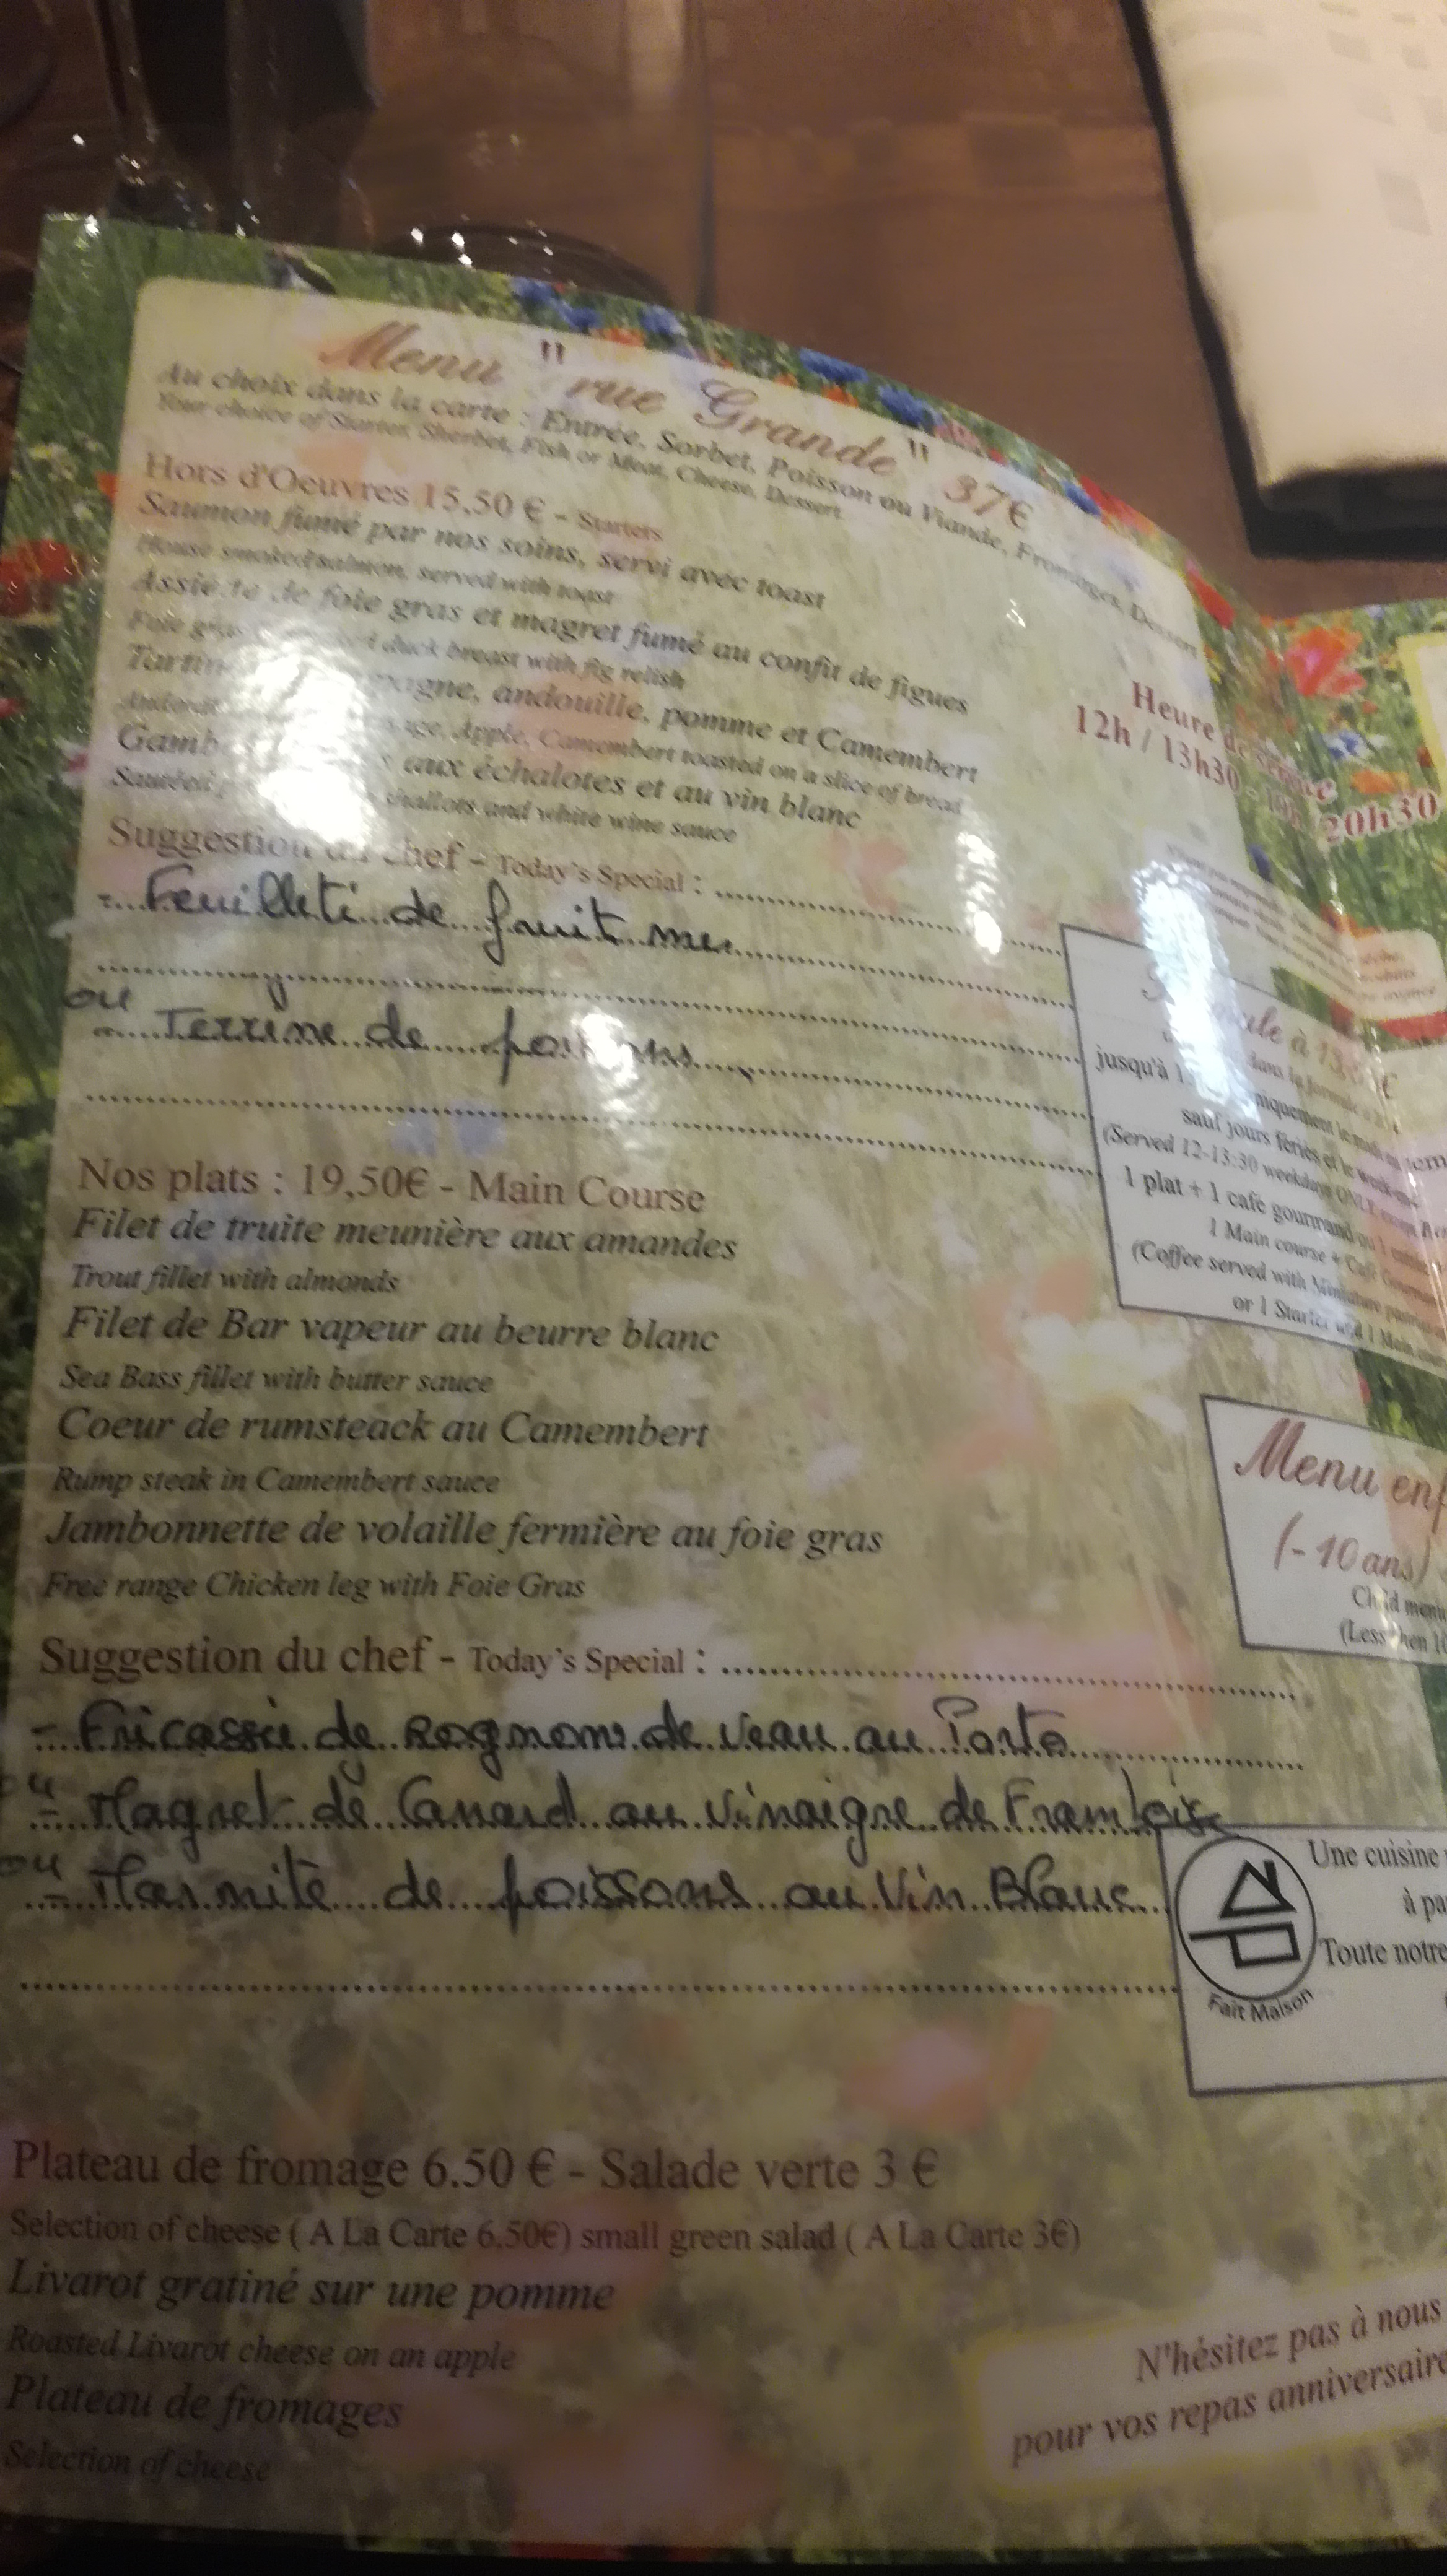 Menu "rue Grande" 37€
Au choix dans la carte : Entrée, Sorbet, Poisson ou Viande, Fromages, Dessert
Your choice of Starter, Sherbet, Fish or Meat, Cheese, Dessert
Hors d'Oeuvres 15,50 € - Starters
Saumon fumé par nos soins, servi avec toast
House smoked salmon, served with toast
Assiette de foie gras et magret fumé au confit de figues
Foie gras duck breast with fig relish
andouille, pomme et Camembert
Apple, Camembert toasted on a slice of bread
aux échalotes et au vin blanc
shallots and white wine sauce
Suggestion du chef - Today's Special :
- Feuilleti de fruit mer
ou
- Terrine de poissons
Nos plats : 19,50€ - Main Course
Filet de truite meunière aux amandes
Trout fillet with almonds
Filet de Bar vapeur au beurre blanc
Sea Bass fillet with butter sauce
Coeur de rumsteack au Camembert
Rump steak in Camembert sauce
Jambonnette de volaille fermière au foie gras
Free range Chicken leg with Foie Gras
Suggestion du chef - Today's Special :
- Fricassée de Rognons de Veau au Porto
ou - Magret de Canard au Vinaigre de Framboise
ou - Marmite de poissons au Vin Blanc
Plateau de fromage 6.50 € - Salade verte 3 €
Selection of cheese ( A La Carte 6,50€) small green salad ( A La Carte 3€)
Livarot gratiné sur une pomme
Roasted Livarot cheese on an apple
Plateau de fromages
Selection of cheese
Heure de service
12h / 13h30 - 19h / 20h30
jusqu'à
sauf jours fériés et le week-end
(Served 12-13:30 weekdays ONLY
1 plat + 1 café gourmand ou 1
1 Main course + Café Gourmand
(Coffee served with Miniature
or 1 Starter and 1 Main
Menu
(- 10 ans)
Child menu
(Less then 10
Une cuisine
à
Toute notre
Fait Maison
N'hésitez pas à nous
pour vos repas anniversaire